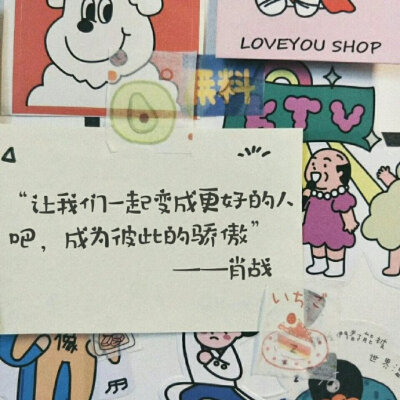 LOVEYOU SHOP
無料
KTV
“让我们一起变成更好的人
吧，成为彼此的骄傲”
——肖战
いちご
像
世界